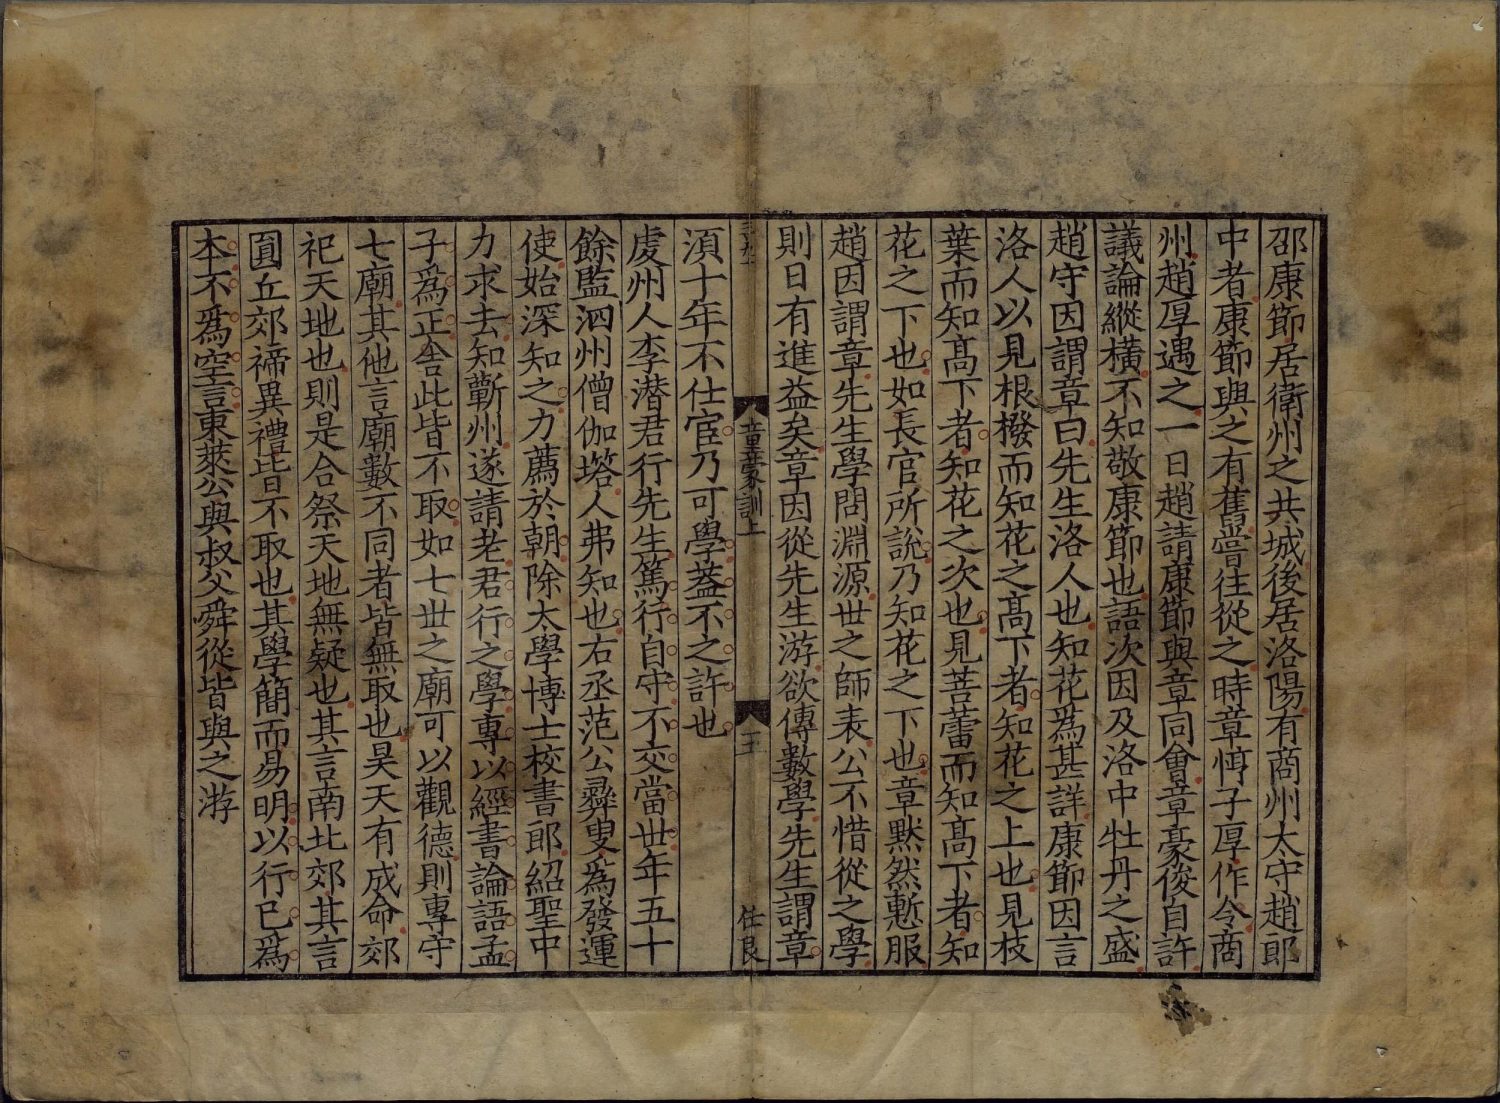 邵康節居衛州之共城後居洛陽有商州太守趙郎
中者康節與之有舊嘗往從之時章惇子厚作令商
州趙厚遇之一日趙請康節與章同會章豪俊自許
議論縱橫不知敬康節也語次因及洛中牡丹之盛
趙守因謂章曰先生洛人也知花爲甚詳康節因言
洛人以見根撥而知花之高下者知花之上也見枝
葉而知高下者知花之次也見蓓蕾而知高下者知
花之下也如長官所說乃知花之下也章默然慙服
趙因謂章先生學問淵源世之師表公不惜從之學
則日有進益矣章因從先生游欲傳數學先生謂章
童蒙訓上
五
任良
湏十年不仕宦乃可學葢不之許也
䖏州人李潜君行先生篤行自守不交當世年五十
餘監泗州僧伽塔人弗知也右丞范公彛叟爲發運
使始深知之力薦於朝除太學博士校書郎紹聖中
力求去知蘄州遂請老君行之學專以經書論語孟
子爲正舎此皆不取如七世之廟可以觀德則專守
七廟其他言廟數不同者皆無取也昊天有成命郊
祀天地也則是合祭天地無疑也其言南北郊其言
圓丘郊禘異禮皆不取也其學簡而易明以行已爲
本不爲空言東萊公與叔父舜從皆與之游